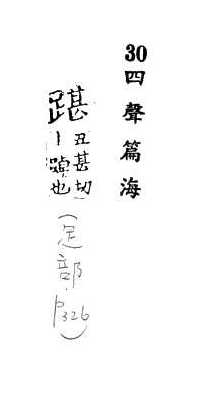 30 四聲篇海
踸 丑甚切
丨踔也
(足部.P326)